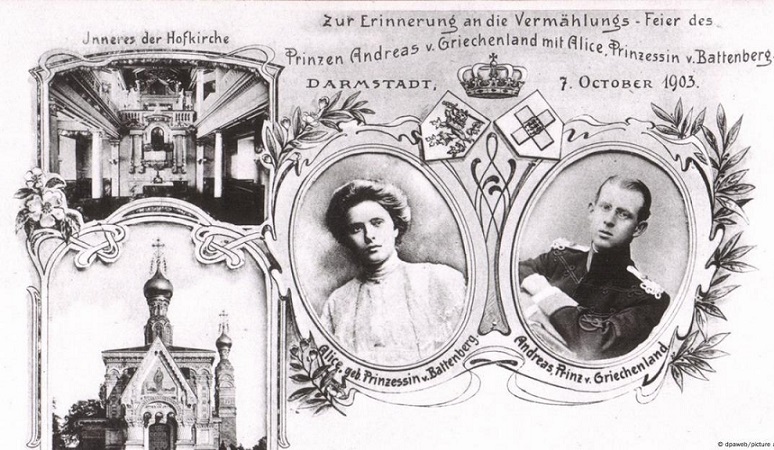 Zur Erinnerung an die Vermählungs-Feier des
Prinzen Andreas v. Griechenland mit Alice, Prinzessin v. Battenberg.
DARMSTADT, 7. OCTOBER 1903.
Inneres der Hofkirche
Alice, geb. Prinzessin v. Battenberg
Andreas, Prinz v. Griechenland
© dpaweb/picture a